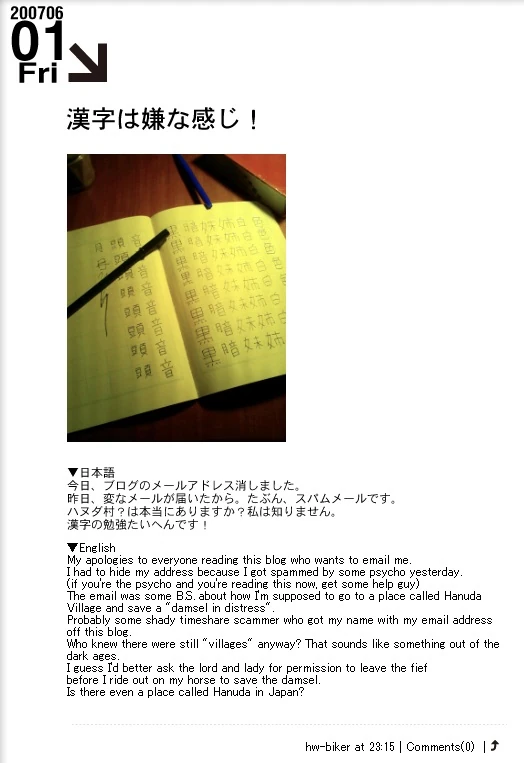 200706
01
Fri
漢字は嫌な感じ！
頭 音
黒 暗 妹 姉 白
頭 音
黒 暗 妹 姉 白
頭 音
頭 音
頭 音
▼日本語
今日、ブログのメールアドレス消しました。
昨日、変なメールが届いたから。たぶん、スパムメールです。
ハヌダ村？は本当にありますか？私は知りません。
漢字の勉強たいへんです！
▼English
My apologies to everyone reading this blog who wants to email me.
I had to hide my address because I got spammed by some psycho yesterday.
(if you're the psycho and you're reading this now, get some help guy)
The email was some B.S. about how I'm supposed to go to a place called Hanuda
Village and save a "damsel in distress".
Probably some shady timeshare scammer who got my name with my email address
off this blog.
Who knew there were still "villages" anyway? That sounds like something out of the
dark ages.
I guess I'd better ask the lord and lady for permission to leave the fief
before I ride out on my horse to save the damsel.
Is there even a place called Hanuda in Japan?
hw-biker at 23:15 | Comments(0) |